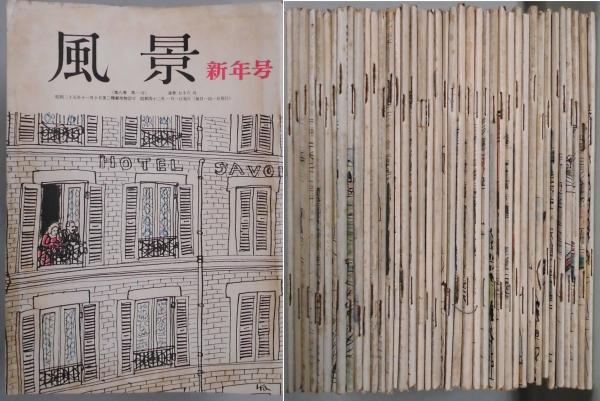 風景
新年号
(第八巻 第一号) 通巻七十六号
昭和三十五年十一月十日第三種郵便物認可 昭和四十二年一月一日発行(毎月一回一日発行)
HOTEL SAVO